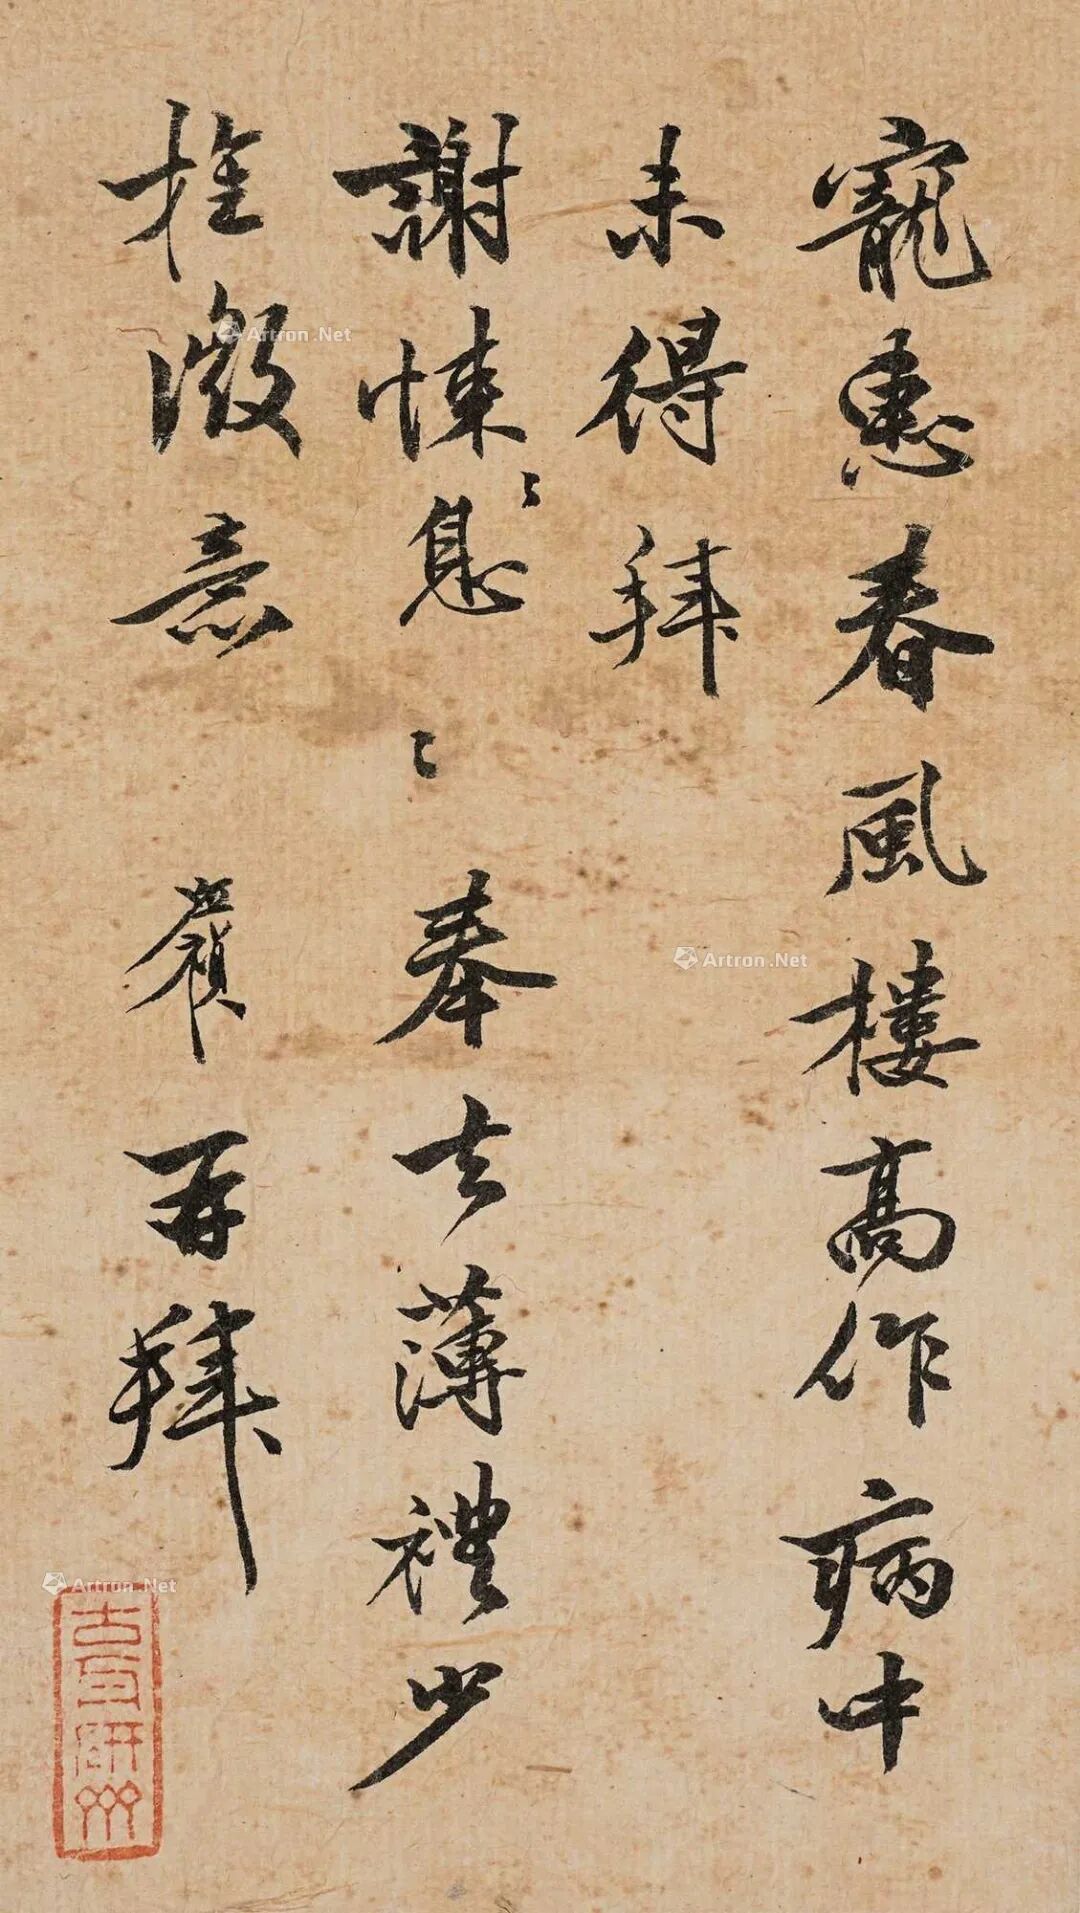 寵惠春風樓高作病中
未得拜
謝悚々息々奉去薄禮少
旌微意 再拜
Artron.Net
Artron.Net
Artron.Net